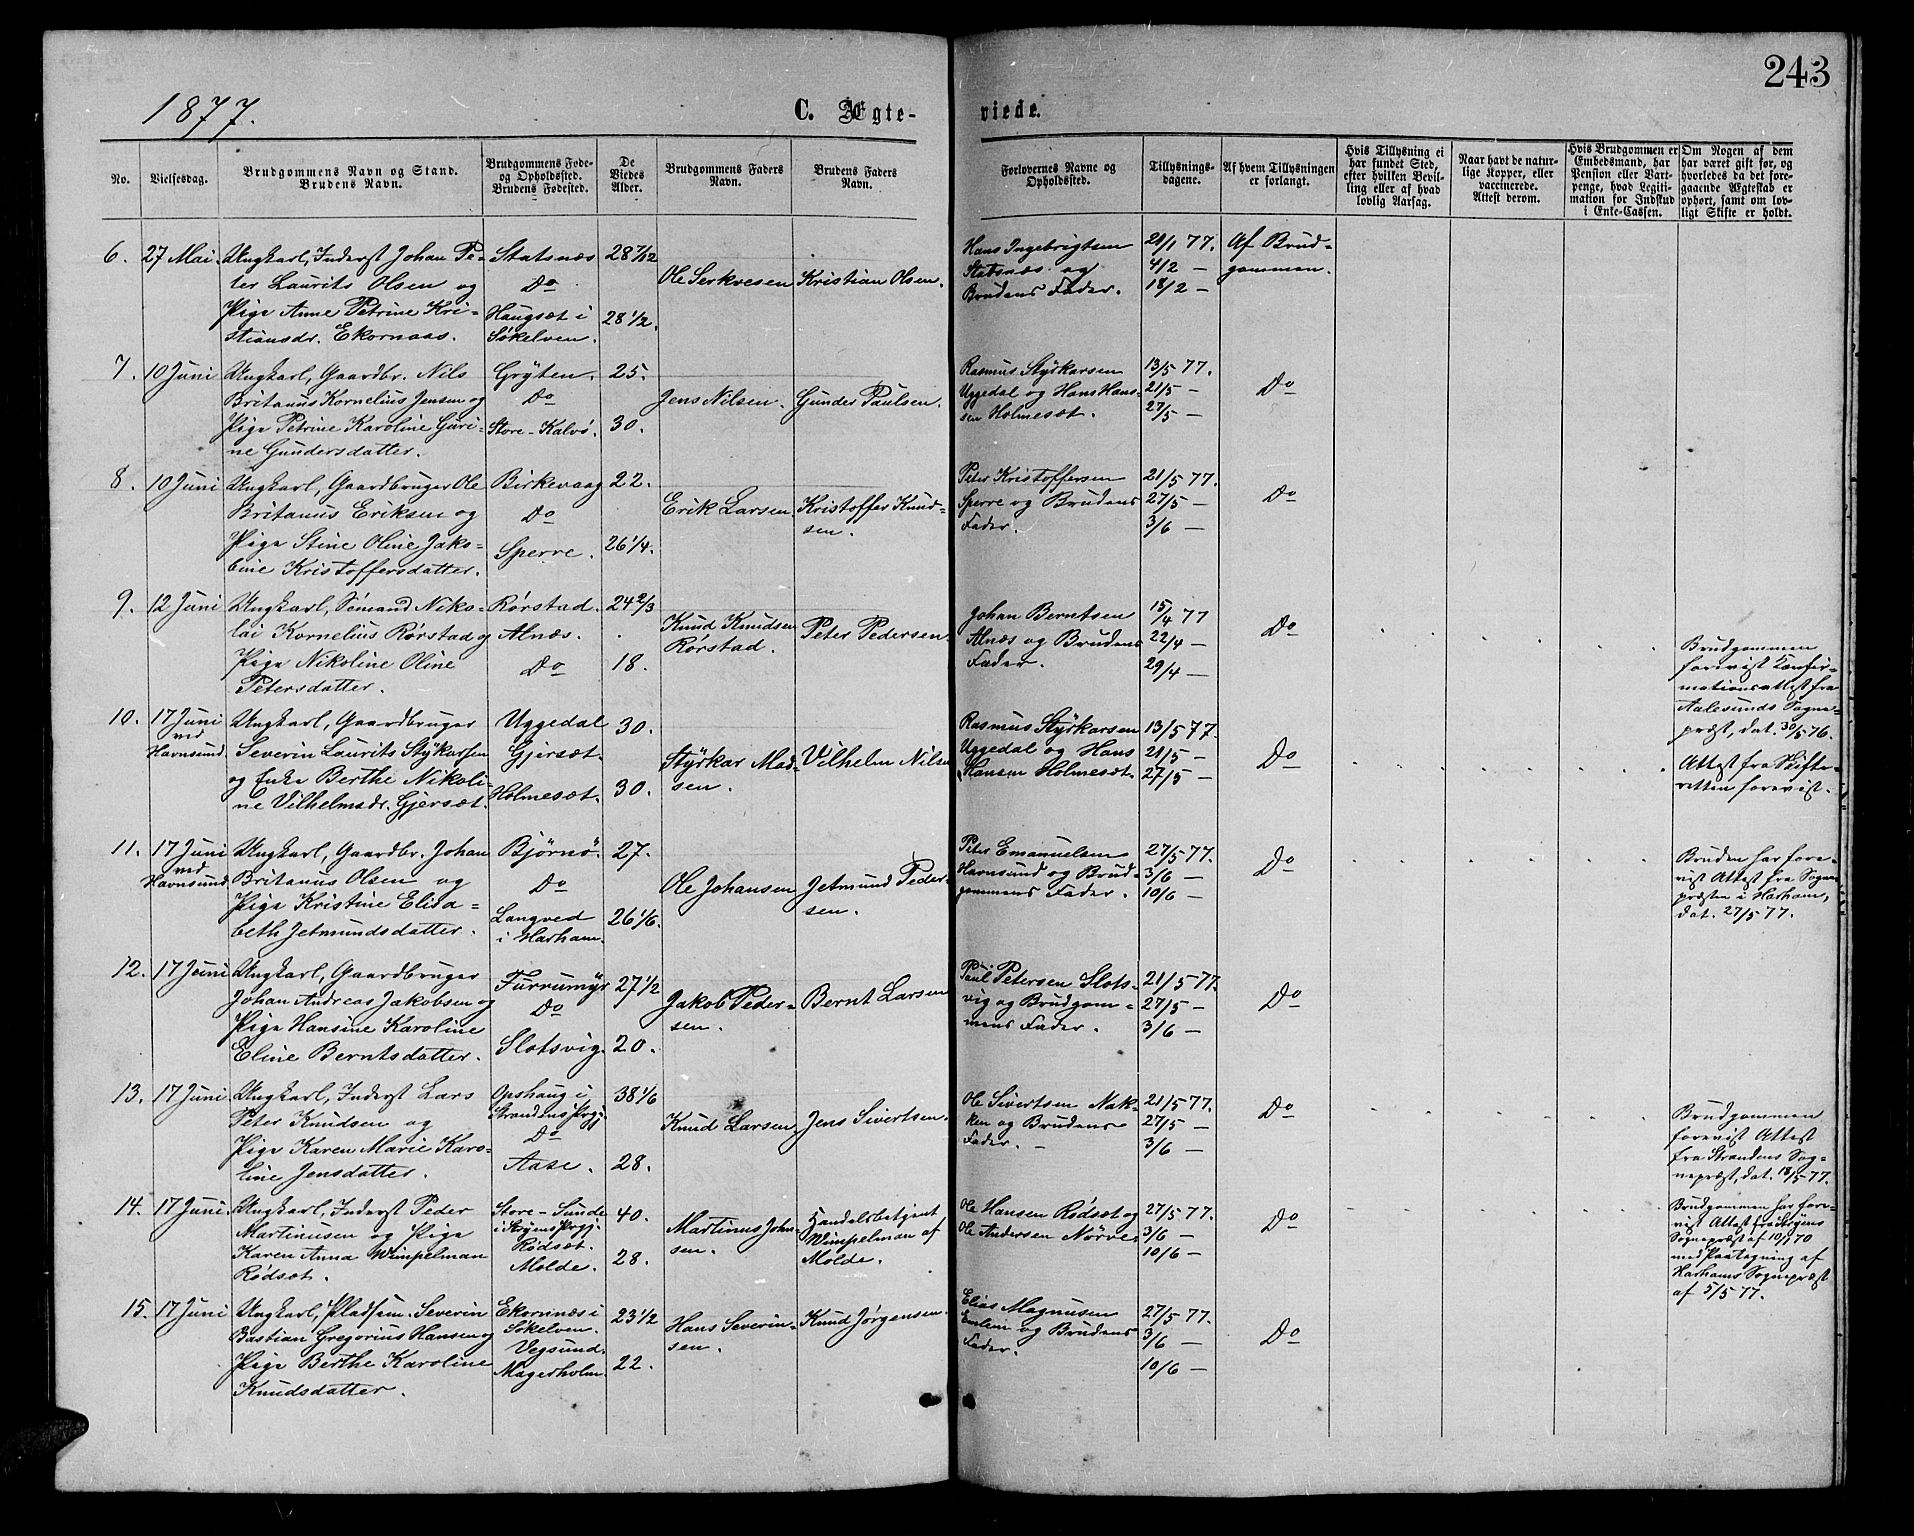 243
1877.
C. Ægte-
viede.
No.
Vielsesdag.
Brudgommens Navn og Stand.
Brudens Navn.
Brudgommens Føde-
og Opholdssted.
Brudens Fødested.
De
Viedes
Alder.
Brudgommens Faders
Navn.
Brudens Faders
Navn.
Forlovernes Navne og
Opholdssted.
Tillysnings-
dagene.
Af hvem Tillysningen
er forlangt.
Hvis Tillysning ei
har fundet Sted,
efter hvilken Bevil-
ling eller af hvad
lovlig Aarsag.
Naar havt de natur-
lige Kopper, eller
vaccinerede.
Attest derom.
Hvis Brudgommen er
Embedsmand, har
Pension eller Vart-
penge, hvad Legiti-
mation for Indskud
i Enke-Cassen.
Om Nogen af dem
har været gift før, og
hvorledes da det fore-
gaaende Ægteskab er
ophørt, samt om lov-
ligt Skifte er holdt.
6. 27 Mai.
Ungkarl, Inderst Johan Pe-
ter Laurits Olsen og
Pige Anne Petrine Kri-
stiansdr. Ekornaas.
Statsnæs
Do
Haugsæt i
Søkelven.
28 7/12
28 1/2.
Ole Serkvesen
Kristian Olsen.
Hans Ingebrigtsen
Statsnæs og
Brudens Fader.
28/1 77.
4/2 —
18/2 —
Af Brud-
gommen.
7. 10 Juni
Ungkarl, Gaardbr. Nils
Britanus Kornelius Jensen og
Pige Petrine Karoline Guri-
ne Gundersdatter.
Gryten.
Do
Store-Kalvø.
25.
30.
Jens Nilsen.
Gunder Paulsen.
Rasmus Styrkarsen
Uggedal og Hans Han-
sen Holmesæt.
13/5 77.
21/5 —
27/5 —
Do
8. 10 Juni
Ungkarl, Gaardbruger Ole
Britanus Eriksen og
Pige Stine Oline Jako-
bine Kristoffersdatter.
Birkevaag
Do
Sperre.
22.
26 1/4.
Erik Larsen
Kristoffer Knud-
sen.
Peter Kristoffersen
Sperre og Brudens
Fader.
21/5 77.
27/5 —
3/6 —
Do
9. 12 Juni
Ungkarl, Sømand Niko-
lai Kornelius Rørstad og
Pige Nikoline Oline
Petersdatter.
Rørstad.
Alnæs.
Do
24 2/3
18.
Knud Knudsen
Rørstad.
Peter Pedersen.
Johan Berntsen
Alnæs og Brudens
Fader.
15/4 77
22/4 —
29/4 —
Do
Brudgommen
forevist Konfir-
mationsattest fra
Aalesunds Sogne-
præst, dat. 30/5 76.
10. 17 Juni
ved
Havnsund.
Ungkarl, Gaardbruger
Severin Laurits Styrkarsen
og Enke Berthe Nikoli-
ne Vilhelmsdr. Gjersæt.
Uggedal
Gjersæt.
Holmesæt.
30.
30.
Styrkar Mad-
sen.
Vilhelm Nilsen
Rasmus Styrkarsen
Uggedal og Hans
Hansen Holmesæt.
13/5 77.
21/5 —
27/5 —
Do
Attest fra Skifte-
retten forevist.
11. 17 Juni
ved
Havnsund.
Ungkarl, Gaardbr. Johan
Britanus Olsen og
Pige Kristine Elisa-
beth Jetmundsdatter.
Bjørnø.
Do
Langved
i Harham.
27.
26 1/6.
Ole Johansen
Jetmund Peder-
sen.
Peter Emanuelsen
Havnsund og Brud-
gommens Fader.
27/5 77.
3/6 —
10/6 —
Do
Bruden har fore-
vist Attest fra Sogne-
præsten i Harham,
dat. 27/5 77.
12. 17 Juni
Ungkarl, Gaardbruger
Johan Andreas Jakobsen og
Pige Hansine Karoline
Eline Berntsdatter.
Furrumyr
Do
Slotsvig.
27 1/2
20.
Jakob Peder-
sen.
Bernt Larsen
Paul Petersen Slots-
vig og Brudgom-
mens Fader.
21/5 77.
27/5 —
3/6 —
Do
13. 17 Juni
Ungkarl, Inderst Lars
Peter Knudsen og
Pige Karen Marie Karo-
line Jensdatter.
Opshaug i
Strandens Prgj.
Do
Aase.
38 1/6
28.
Knud Larsen
Jens Sivertsen.
Ole Sivertsen Nak-
ken og Brudens
Fader.
21/5 77.
27/5 —
3/6 —
Do
Brudgommen
forevist Attest
fra Strandens Sog-
nepræst, dat. 18/5 77.
14. 17 Juni.
Ungkarl, Inderst Peder
Martinusen og Pige
Karen Anna Wimpelman
Rødsæt.
Store-Sunde
i Stryns Prgj.
Rødsæt.
Molde.
40.
28.
Martinus John-
sen.
Handelsbetjent
Wimpelman af
Molde.
Ole Hansen Rødsæt og
Ole Andersen Nørve.
27/5 77.
3/6 —
10/6 —
Do
Brudgommen har fore-
vist Attest fra Stryns
Sognepræst af 10/1 70
med Paategning af
Harhams Sognepræst
af 5/5 77.
15. 17 Juni
Ungkarl, Pladsem. Severin
Bastian Gregorius Hansen og
Pige Berthe Karoline
Knudsdatter.
Ekornnæs i
Søkelven.
Vegsund.
Magerholm.
23 1/2
22.
Hans Severin-
sen.
Knud Jørgensen.
Elias Magnusen
Emlem og Brudens
Fader.
27/5 77.
3/6 —
10/6 —
Do